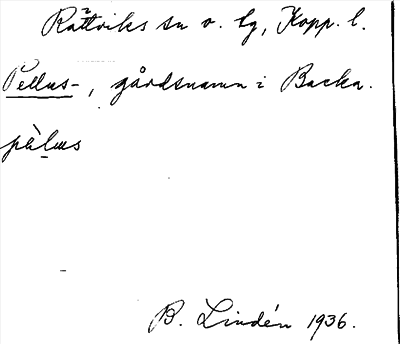 Rättviks sn o. tg, Kopp. l.
Pellus-, gårdsnamn i Backa.
pàlus
B. Lindén 1936.